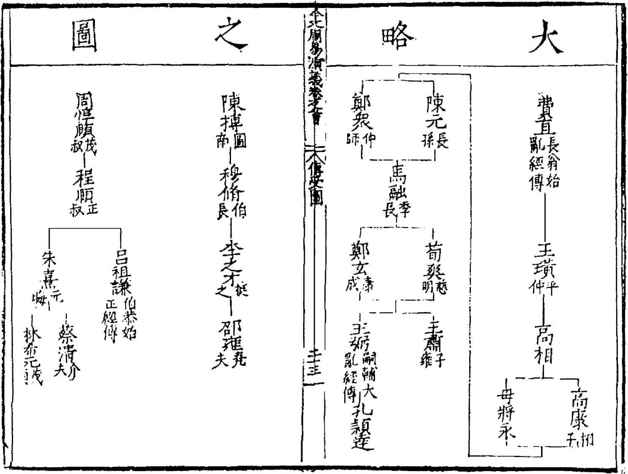 大略之圖
費直長翁始亂經傳
王璜平仲
高相
高康相子
毋將永
陳元長孫
鄭眾仲師
馬融季長
荀爽慈明
鄭玄康成
王肅子雍
王弼嗣輔大亂經傳
孔穎達
周易演義卷之首
傳易圖
二十三
陳摶圖南
穆脩伯長
李之才挺之
邵雍堯夫
周惇頤茂叔
程頤正叔
呂祖謙伯恭始正經傳
朱熹元晦
蔡清介夫
林希元茂貞